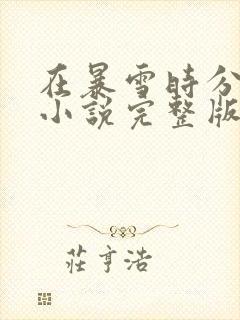 在暴雪時分
小說完整版
莊亨浩